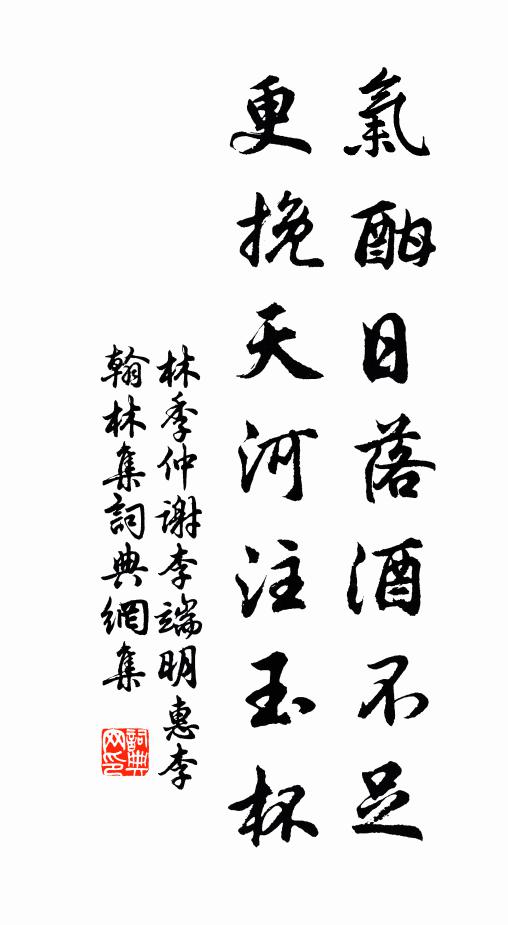 氣酣日落酒不足
更挽天河注玉杯
林季仲謝李端明惠李
翰林集詞典網集
詞典网印